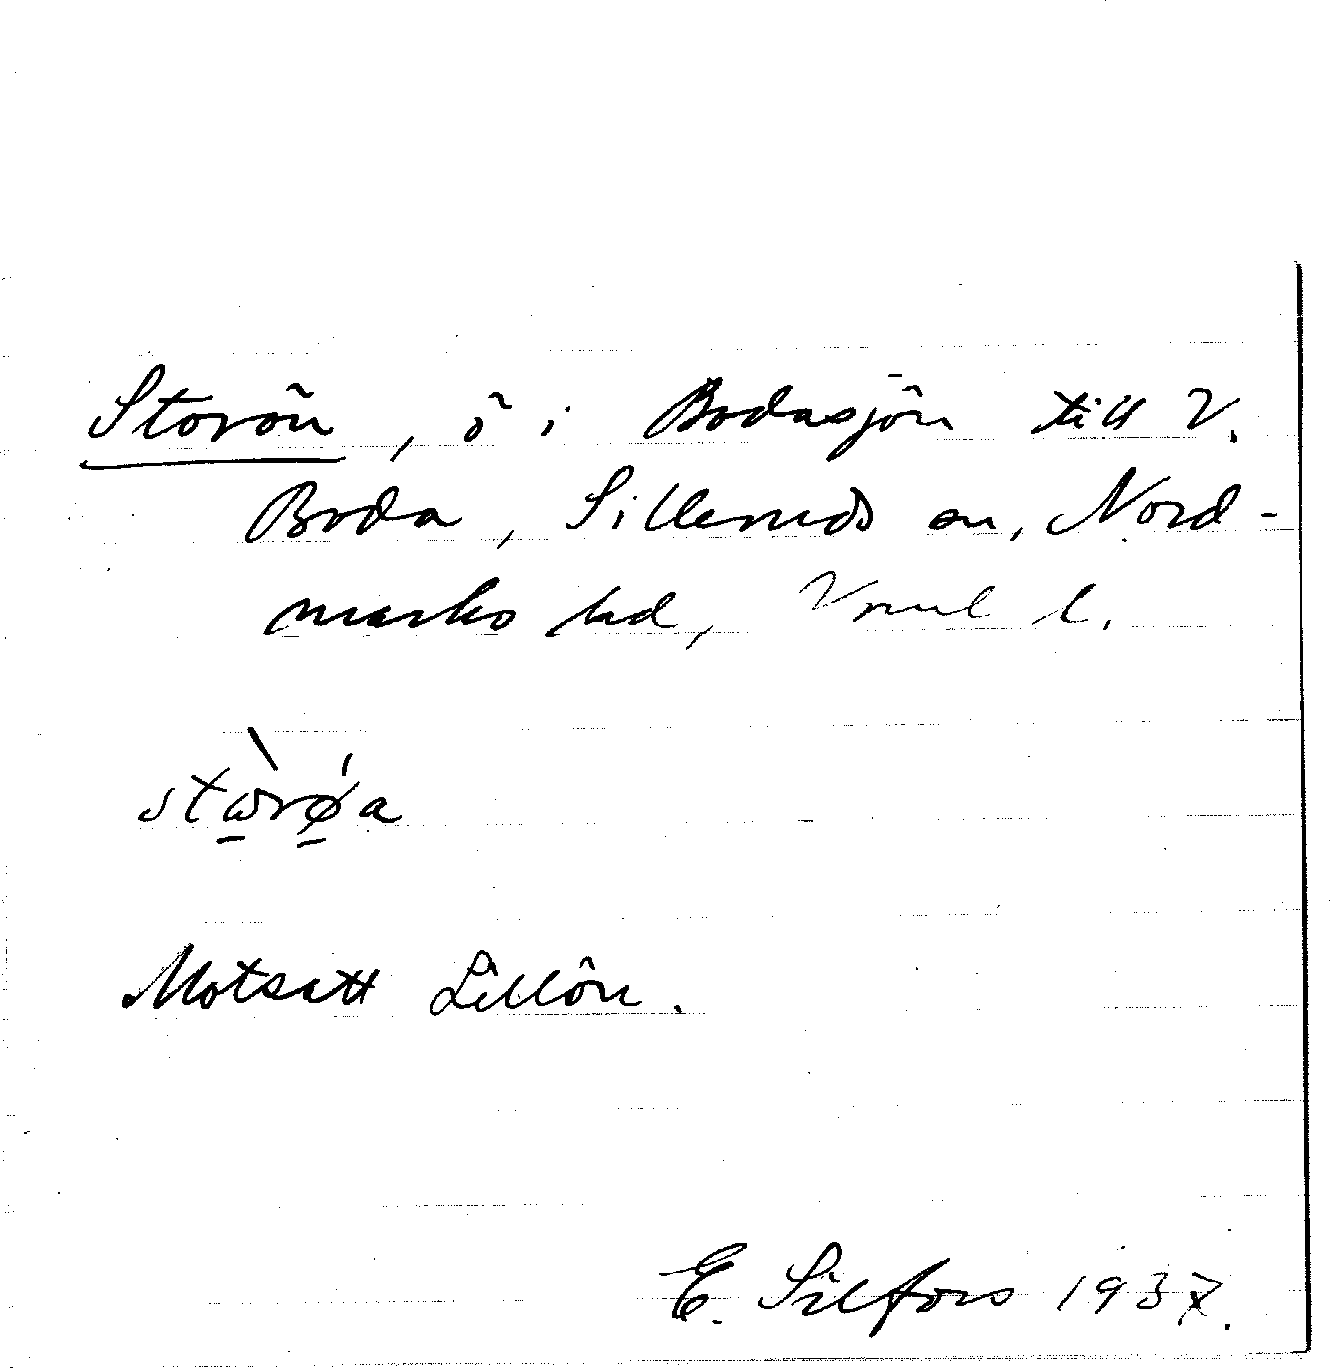 Storön, ö i Bodasjön till V.
Boda, Silleruds sn, Nord-
marks hd, Vrml l.
stὼ̲rǿ̲a
Motsatt Lillön.
E. Silfors 1937.